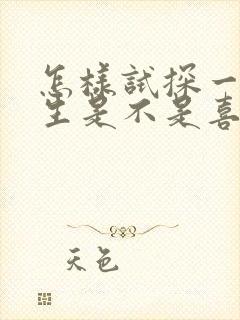 怎樣試探一
生是不是喜
天色